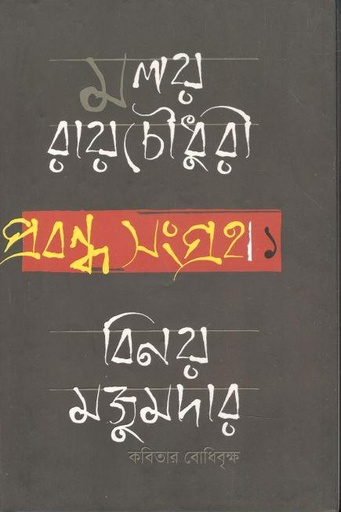 মলয়
রায়চৌধুরী
প্রবন্ধ সংগ্রহ ১
বিনয়
মজুমদার
কবিতার বোধিবৃক্ষ